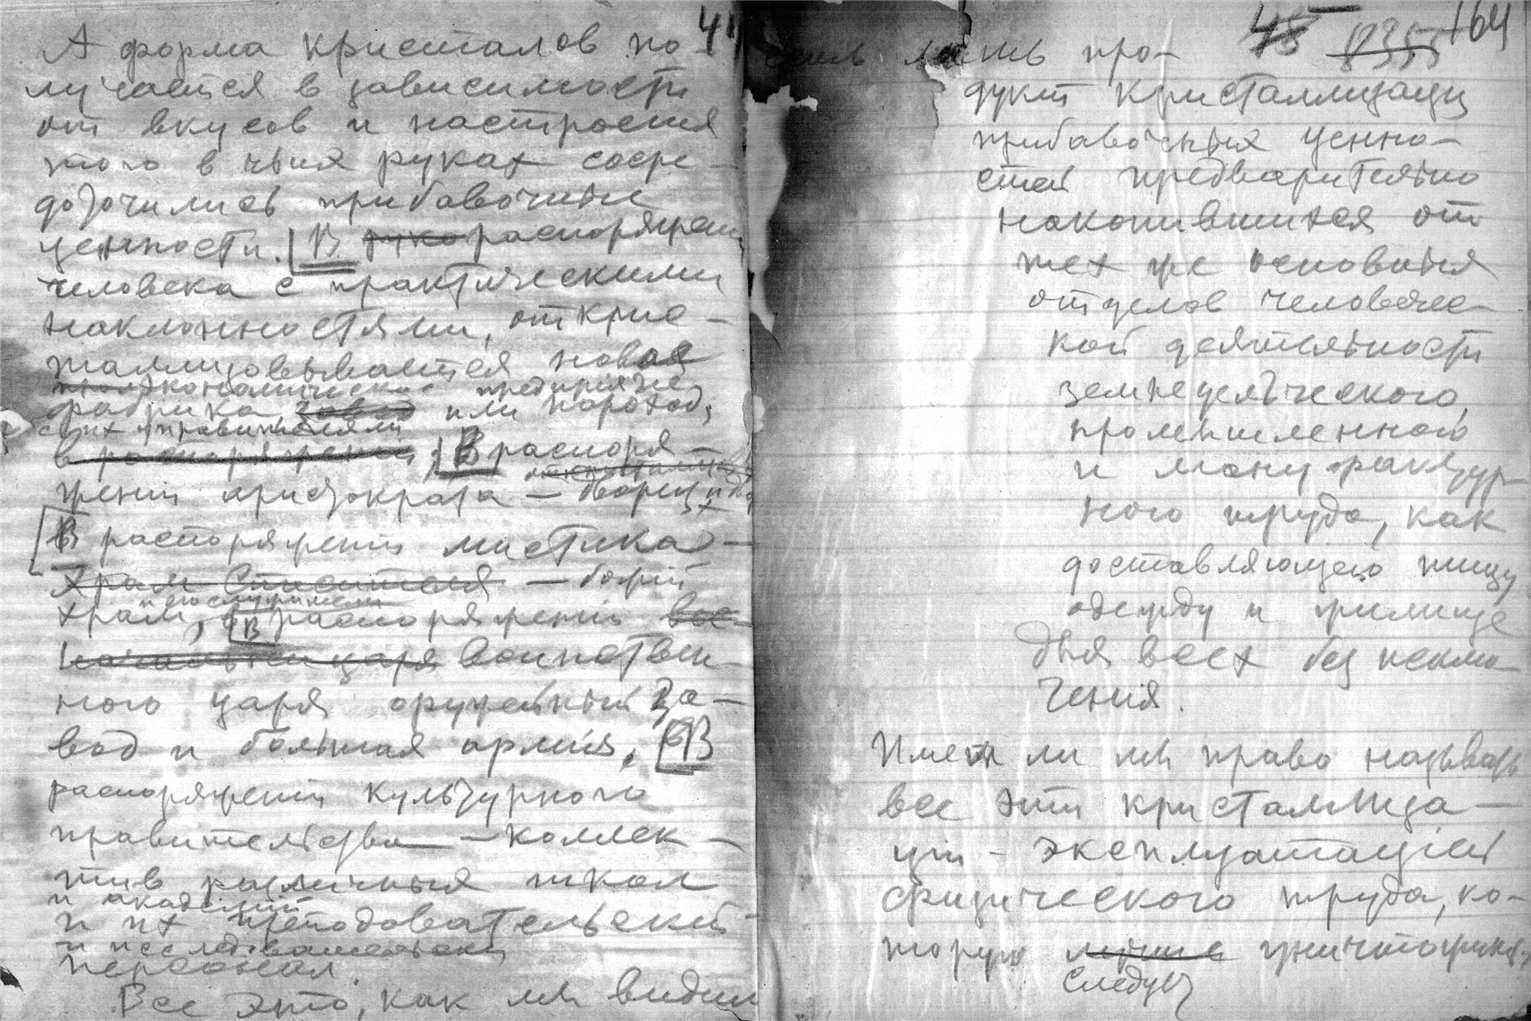 41
А форма кристалов по-
лучается в зависимости
от вкусов и настроения
того в чьих руках сосре-
доточились прибавочные
ценности. В руко распоряжении
человека с практическими
наклонностями, откри-
таллизовывается новая
экономическое предприятие
фабрика, завод или пароход,
с их правителями
в распоряжении, В распоря-
жении аристократа — дворец
В распоряжении мистика —
Храм Спасителя — божий
храм, В распоряжении вое
начальни царя воинствен-
ного царя оружейный за-
вод и большая армия, В
распоряжении культурного
правительства — коллек-
тив различных школ
и академий
и их преподавательский
и исследовательский
персонал.
Все это, как мы видим
45 8355 164
лишь про-
дукт кристаллизации
прибавочных ценно-
стей предварительно
накопившихся от
тех же основных
отделов человечес-
кой деятельности
земледельческого,
промышленного
и мануфактур-
ного труда, как
доставляющего пищу
одежду и жилище
для всех без исклю-
чения.
Имеем ли мы право называть
все эти кристаллиза-
ции — эксплуатацией
физического труда, ко-
торую лучше уничтожить,
следует